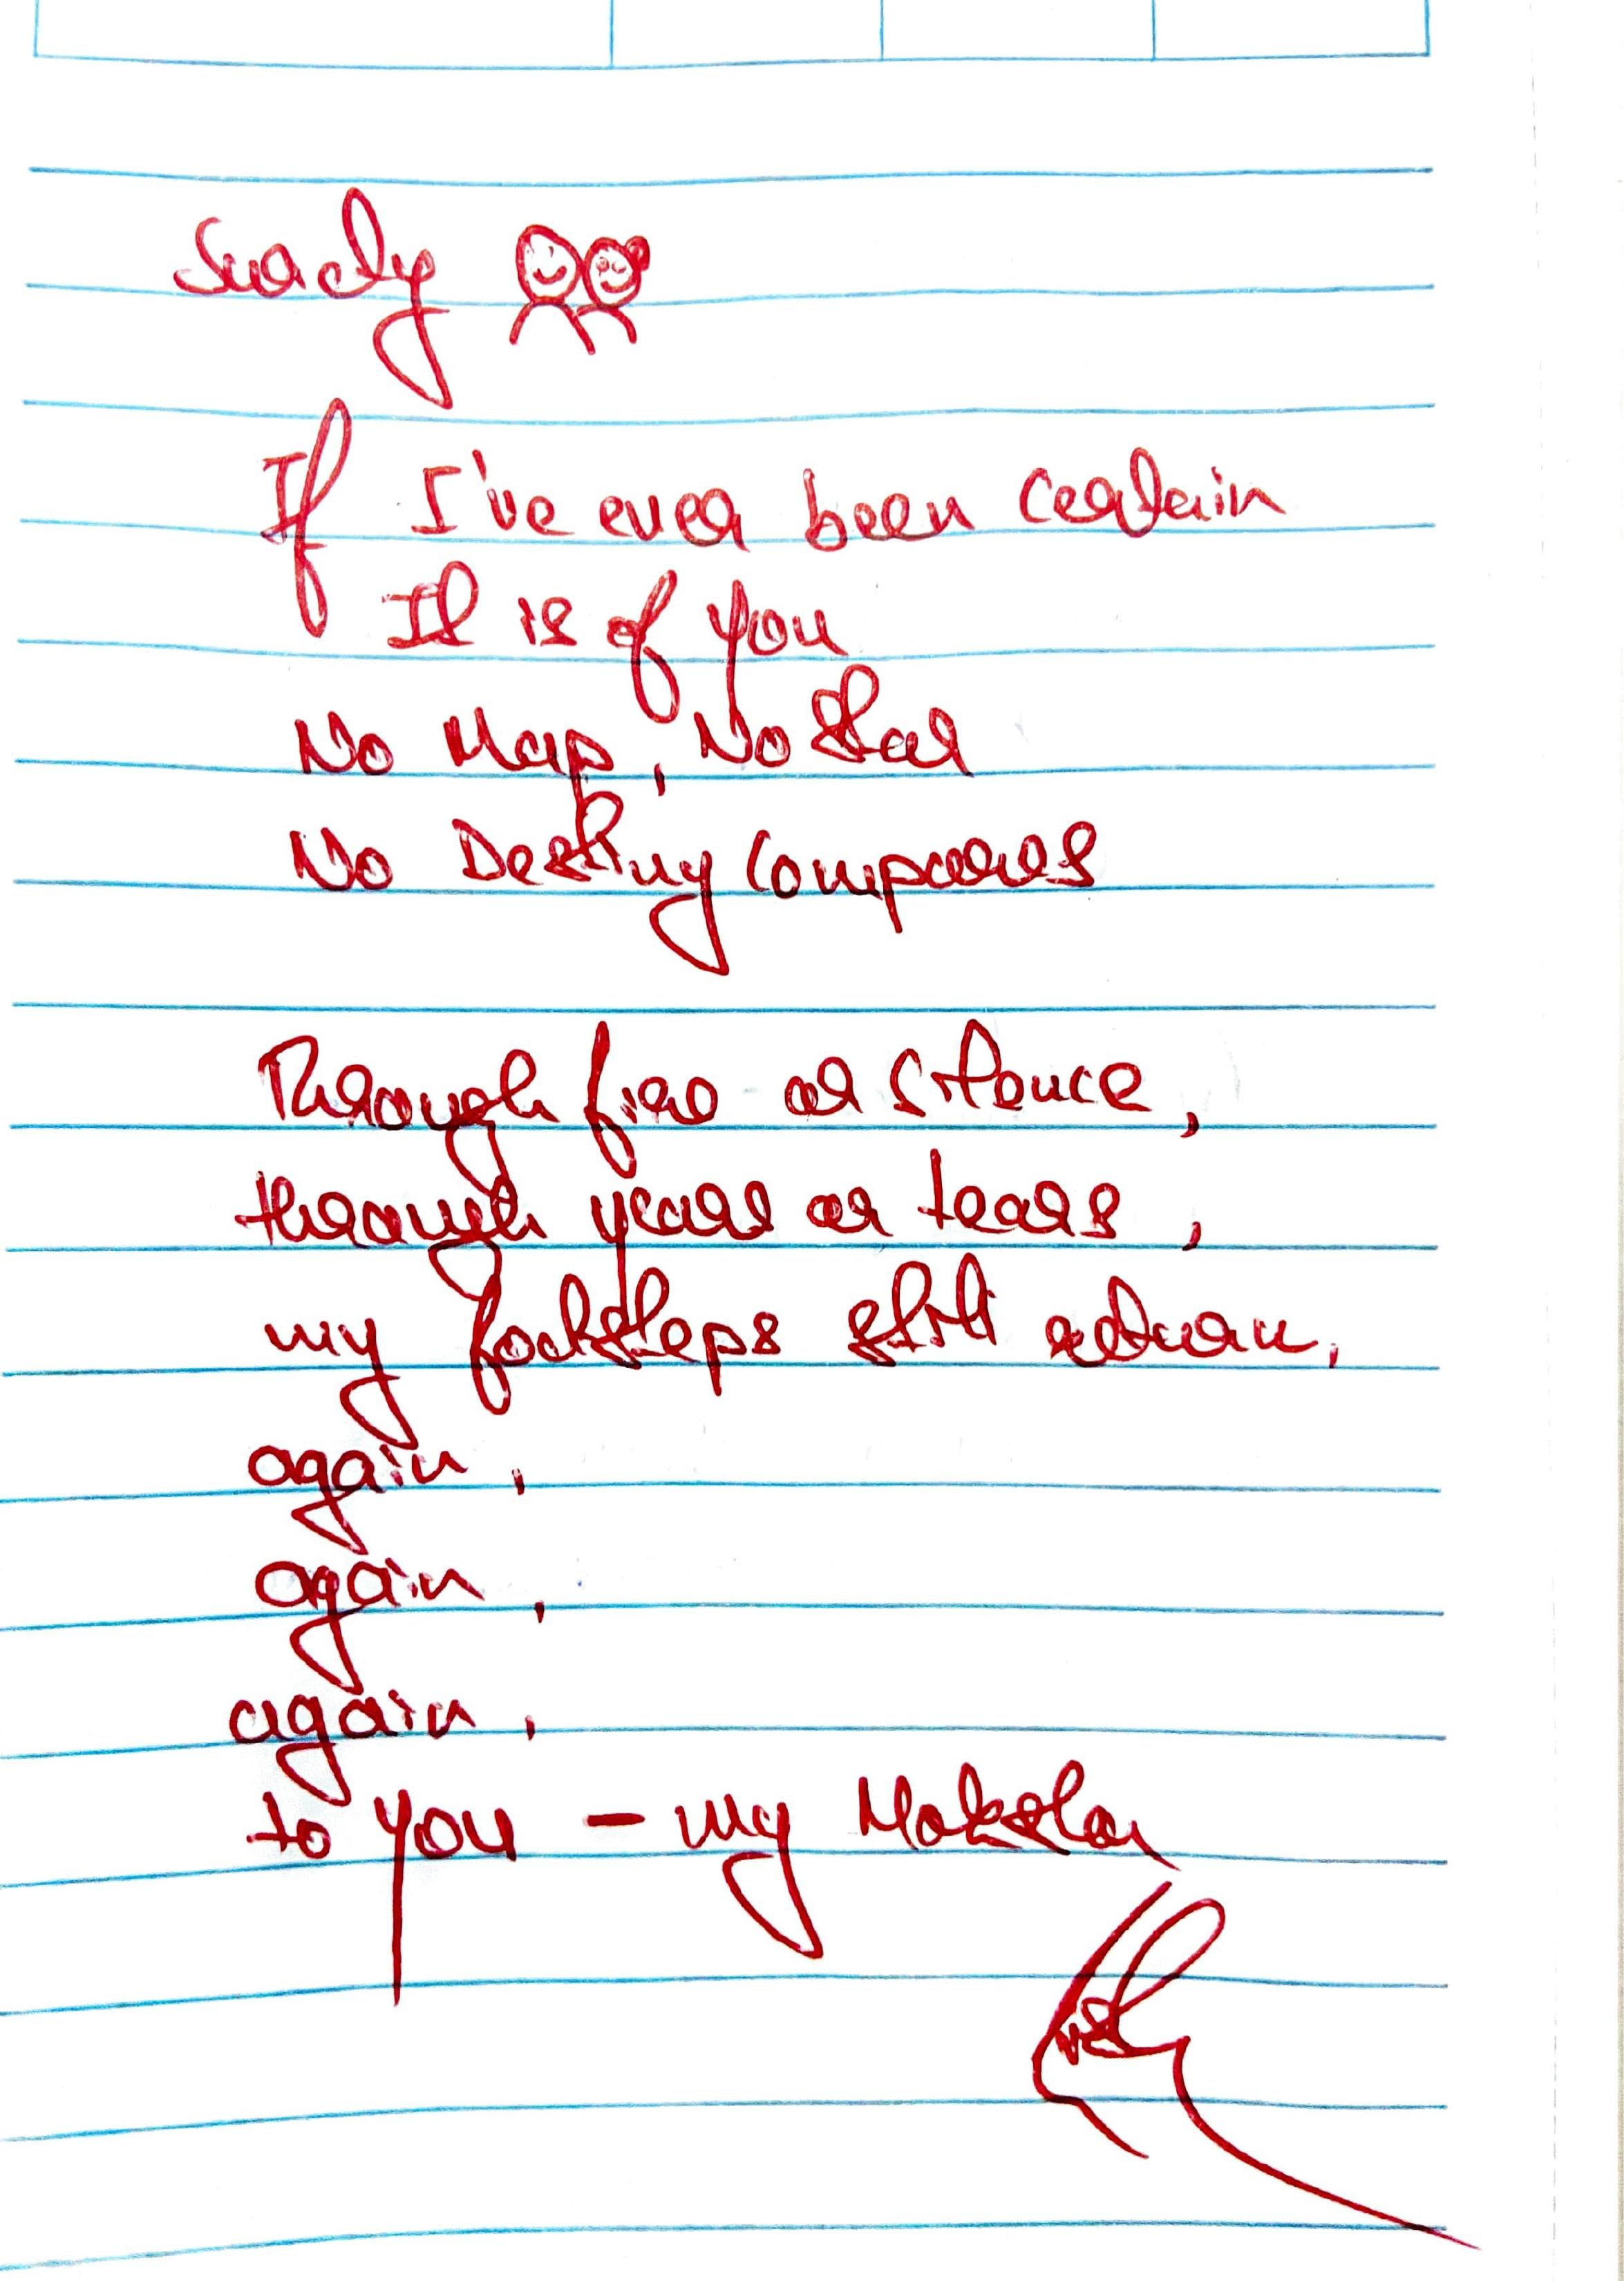 If I've ever been certain
It is of you
No Map, No Star
No Destiny Compares
Through fire or silence,
through years or tears,
my footsteps still return,
again,
again,
again,
to you - my Moksha